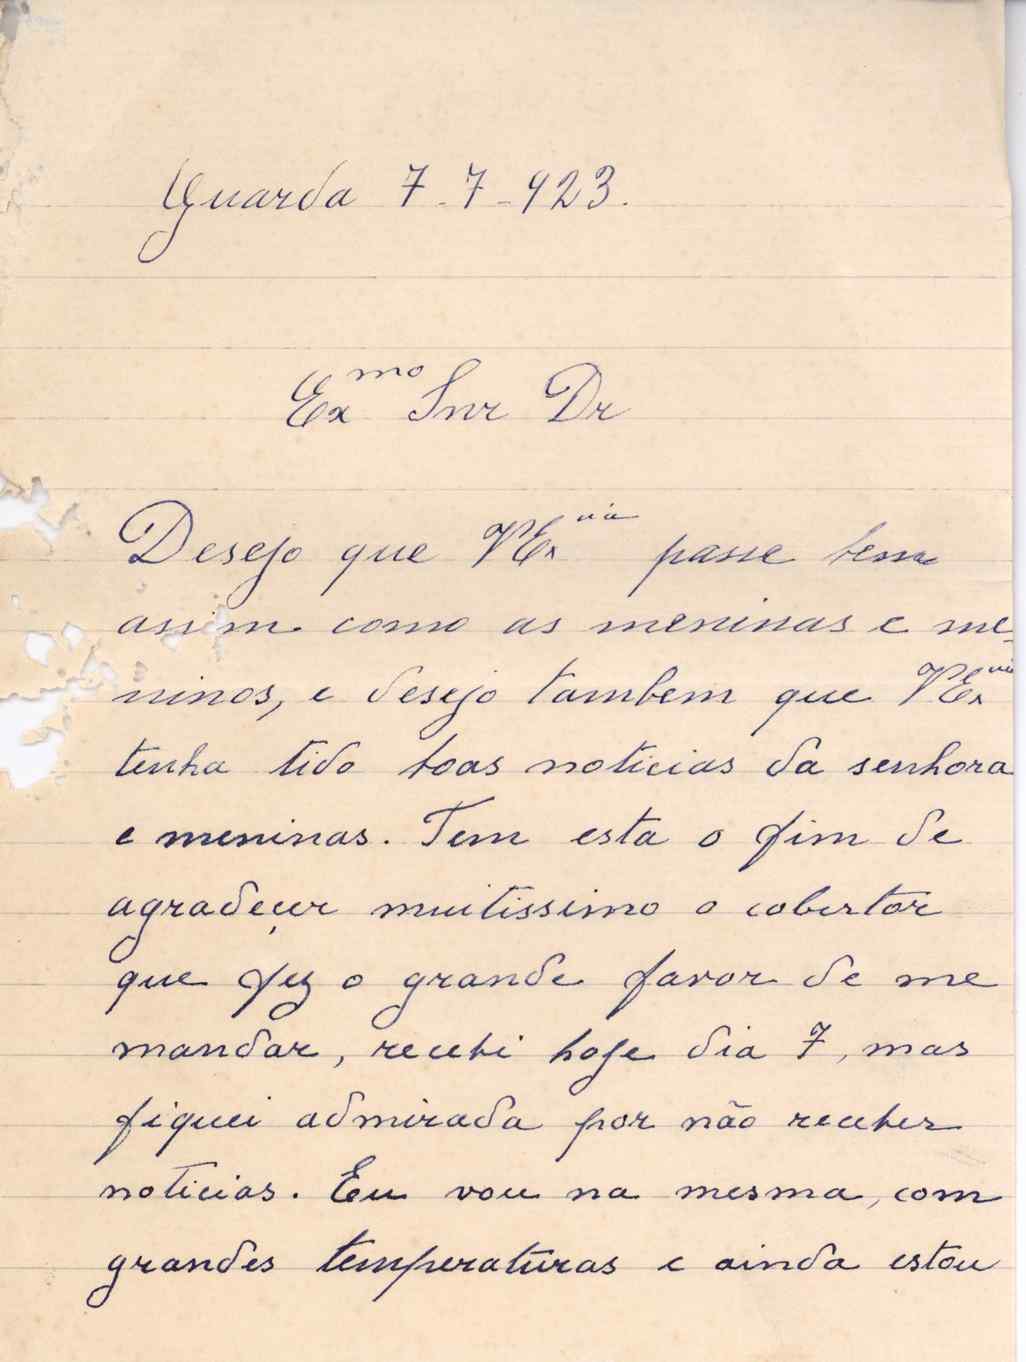 Guarda 7-7-923.
Exmo Snr Dr
Desejo que VExcia passe bem
assim como as meninas e me-
ninos, e desejo tambem que VExcia
tenha tido boas noticias da senhora
e meninas. Tem esta o fim de
agradeçer muitissimo o cobertor
que fez o grande favor de me
mandar, recebi hoje dia 7, mas
fiquei admirada por não receber
noticias. Eu vou na mesma, com
grandes temperaturas e ainda estou